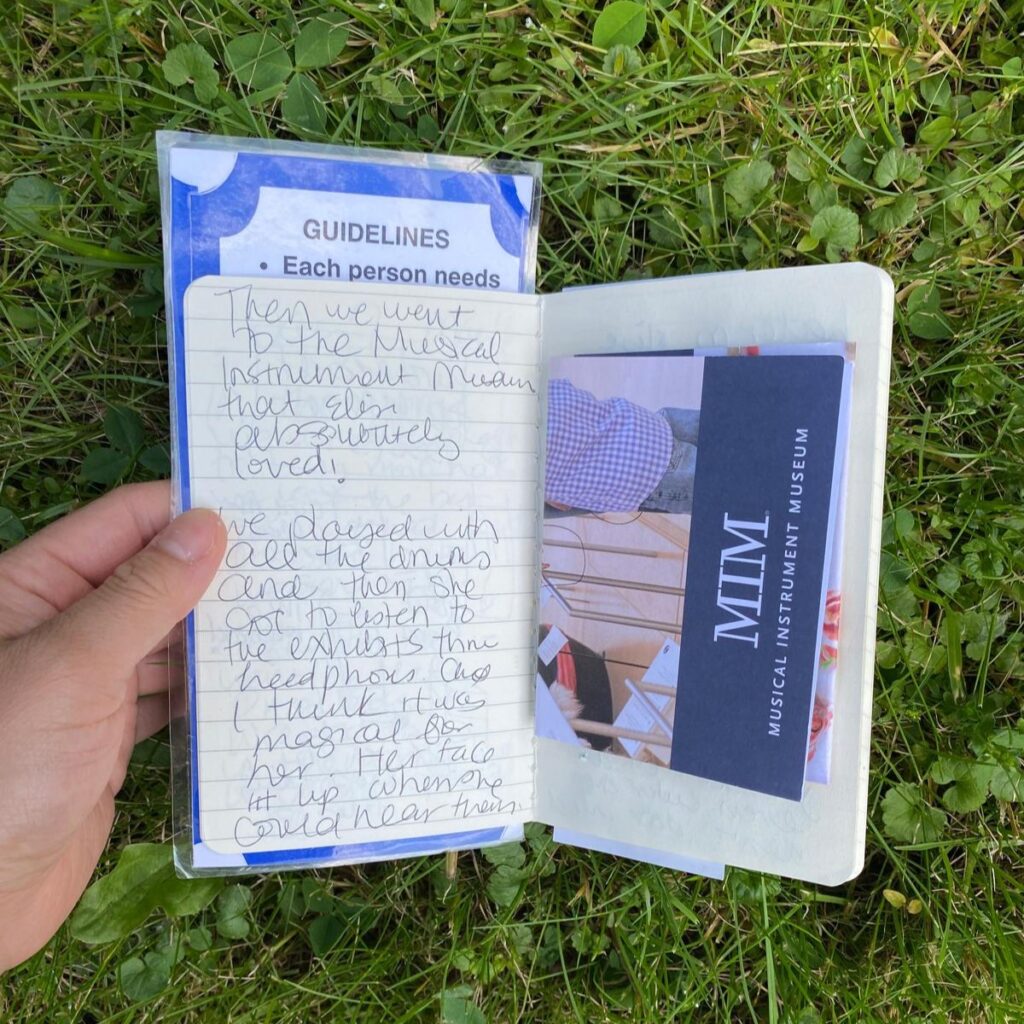 GUIDELINES
• Each person needs
Then we went
to the Musical
Instrument Museum
that Elise
absolutely
loved!
We played with
all the drums
and then she
got to listen to
the exhibits thru
headphones. And
I think it was
magical for
her. Her face
lit up when she
could hear them.
MIM
MUSICAL INSTRUMENT MUSEUM